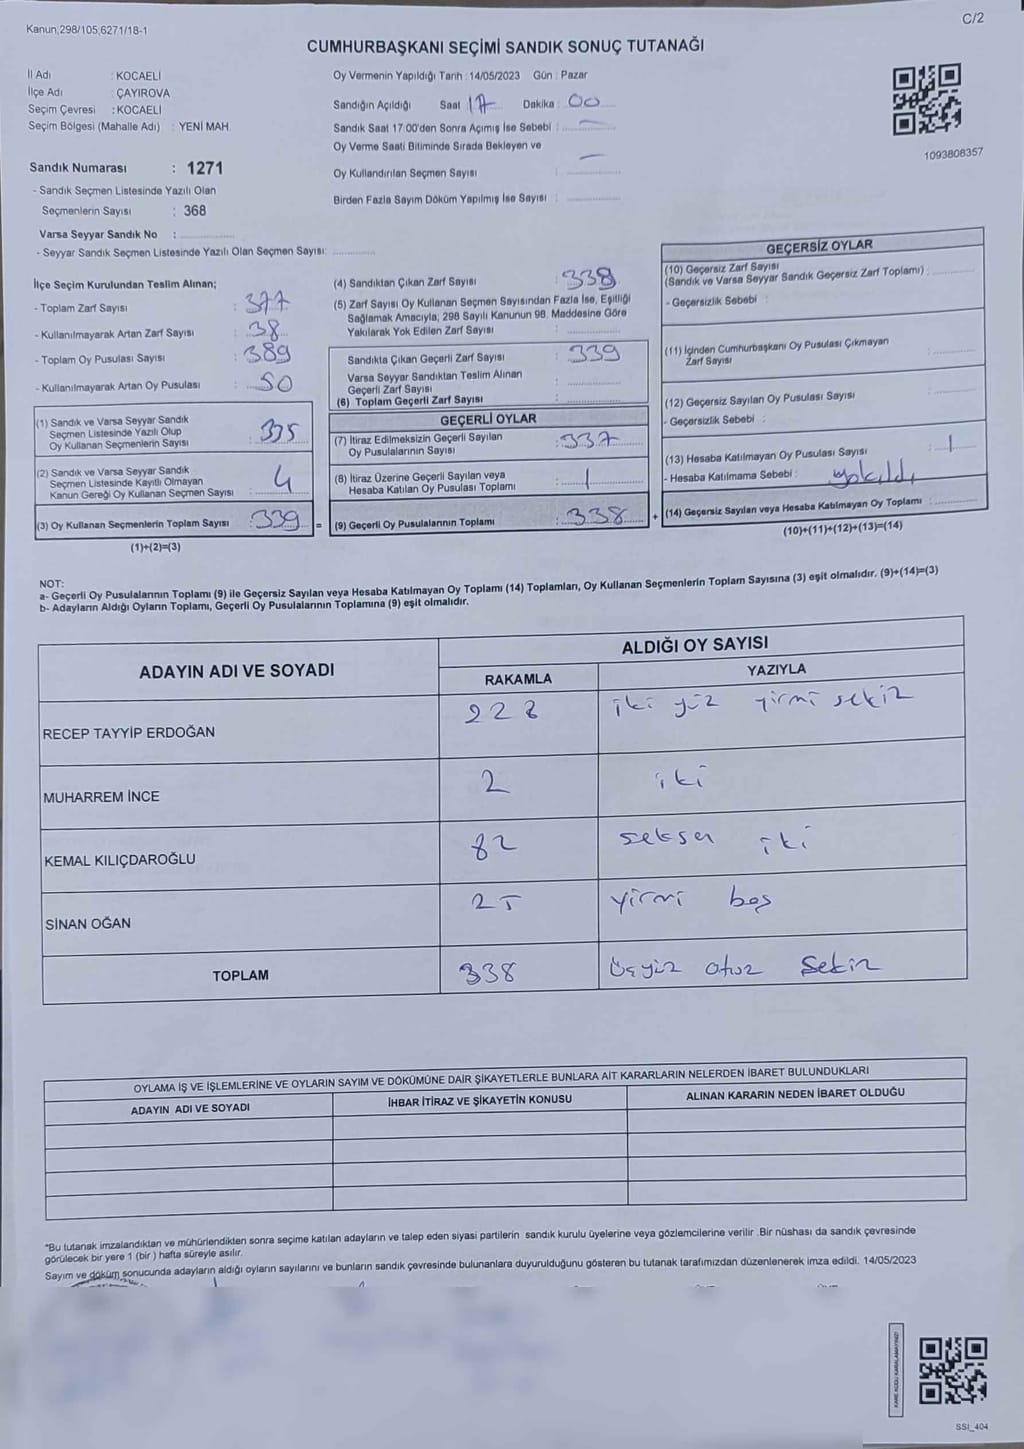 Kanun;298/105;6271/18-1
C/2
CUMHURBAŞKANI SEÇİMİ SANDIK SONUÇ TUTANAĞI
İl Adı : KOCAELİ
İlçe Adı : ÇAYIROVA
Seçim Çevresi : KOCAELİ
Seçim Bölgesi (Mahalle Adı) : YENİ MAH.
Sandık Numarası : 1271
- Sandık Seçmen Listesinde Yazılı Olan
Seçmenlerin Sayısı : 368
Varsa Seyyar Sandık No :
- Seyyar Sandık Seçmen Listesinde Yazılı Olan Seçmen Sayısı:
Oy Vermenin Yapıldığı Tarih : 14/05/2023 Gün : Pazar
Sandığın Açıldığı Saat 17 Dakika : 00
Sandık Saat 17:00'den Sonra Açımış İse Sebebi : —
Oy Verme Saati Bitiminde Sırada Bekleyen ve
Oy Kullandırılan Seçmen Sayısı : —
Birden Fazla Sayım Döküm Yapılmış İse Sayısı :
1093808357
İlçe Seçim Kurulundan Teslim Alınan;
- Toplam Zarf Sayısı : 377
- Kullanılmayarak Artan Zarf Sayısı : 38
- Toplam Oy Pusulası Sayısı : 389
- Kullanılmayarak Artan Oy Pusulası : 50
(1) Sandık ve Varsa Seyyar Sandık
Seçmen Listesinde Yazılı Olup
Oy Kullanan Seçmenlerin Sayısı : 335
(2) Sandık ve Varsa Seyyar Sandık
Seçmen Listesinde Kayıtlı Olmayan
Kanun Gereği Oy Kullanan Seçmen Sayısı : 4
(3) Oy Kullanan Seçmenlerin Toplam Sayısı : 339 =
(1)+(2)=(3)
(4) Sandıktan Çıkan Zarf Sayısı : 338
(5) Zarf Sayısı Oy Kullanan Seçmen Sayısından Fazla İse, Eşitliği
Sağlamak Amacıyla, 298 Sayılı Kanunun 98. Maddesine Göre
Yakılarak Yok Edilen Zarf Sayısı :
Sandıkta Çıkan Geçerli Zarf Sayısı : 339
Varsa Seyyar Sandıktan Teslim Alınan
Geçerli Zarf Sayısı :
(6) Toplam Geçerli Zarf Sayısı :
GEÇERLİ OYLAR
(7) İtiraz Edilmeksizin Geçerli Sayılan
Oy Pusulalarının Sayısı : 337
(8) İtiraz Üzerine Geçerli Sayılan veya
Hesaba Katılan Oy Pusulası Toplamı : 1
(9) Geçerli Oy Pusulalarının Toplamı : 338 +
GEÇERSİZ OYLAR
(10) Geçersiz Zarf Sayısı
(Sandık ve Varsa Seyyar Sandık Geçersiz Zarf Toplamı) :
- Geçersizlik Sebebi :
(11) İçinden Cumhurbaşkanı Oy Pusulası Çıkmayan
Zarf Sayısı :
(12) Geçersiz Sayılan Oy Pusulası Sayısı :
- Geçersizlik Sebebi :
(13) Hesaba Katılmayan Oy Pusulası Sayısı : 1
- Hesaba Katılmama Sebebi : yakıldı
(14) Geçersiz Sayılan veya Hesaba Katılmayan Oy Toplamı :
(10)+(11)+(12)+(13)=(14)
NOT:
a- Geçerli Oy Pusulalarının Toplamı (9) ile Geçersiz Sayılan veya Hesaba Katılmayan Oy Toplamı (14) Toplamları, Oy Kullanan Seçmenlerin Toplam Sayısına (3) eşit olmalıdır. (9)+(14)=(3)
b- Adayların Aldığı Oyların Toplamı, Geçerli Oy Pusulalarının Toplamına (9) eşit olmalıdır.
ADAYIN ADI VE SOYADI
ALDIĞI OY SAYISI
RAKAMLA YAZIYLA
RECEP TAYYİP ERDOĞAN 228 iki yüz yirmi sekiz
MUHARREM İNCE 2 iki
KEMAL KILIÇDAROĞLU 82 seksen iki
SİNAN OĞAN 25 yirmi beş
TOPLAM 338 üçyüz otuz sekiz
OYLAMA İŞ VE İŞLEMLERİNE VE OYLARIN SAYIM VE DÖKÜMÜNE DAİR ŞİKAYETLERLE BUNLARA AİT KARARLARIN NELERDEN İBARET BULUNDUKLARI
ADAYIN ADI VE SOYADI İHBAR İTİRAZ VE ŞİKAYETİN KONUSU ALINAN KARARIN NEDEN İBARET OLDUĞU
*Bu tutanak imzalandıktan ve mühürlendikten sonra seçime katılan adayların ve talep eden siyasi partilerin sandık kurulu üyelerine veya gözlemcilerine verilir. Bir nüshası da sandık çevresinde
görülecek bir yere 1 (bir ) hafta süreyle asılır.
Sayım ve döküm sonucunda adayların aldığı oyların sayılarını ve bunların sandık çevresinde bulunanlara duyurulduğunu gösteren bu tutanak tarafımızdan düzenlenerek imza edildi. 14/05/2023
KARE KODU KARALAMAYINIZ!
SSİ_404